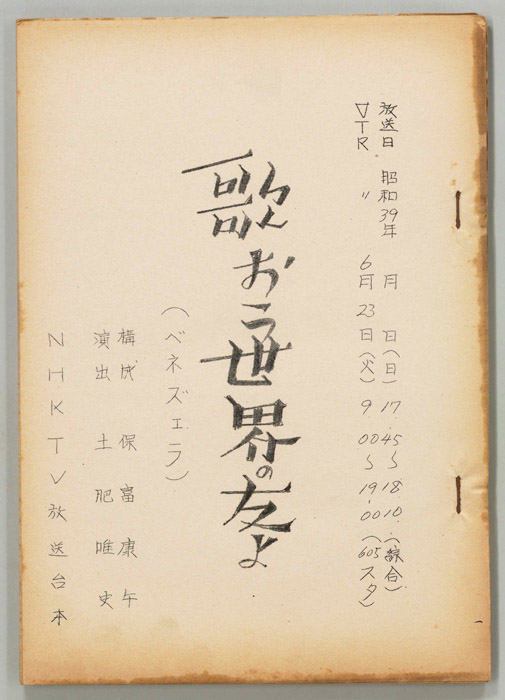 放送日 昭和39年 月 日(日) 17.45〜18.10.(綜合)
VTR 〃 6月23日(火) 9 00〜19.00(605スタ)
歌おう世界の友よ
(ベネズェラ)
構成 保富康午
演出 土肥唯史
NHKTV放送台本